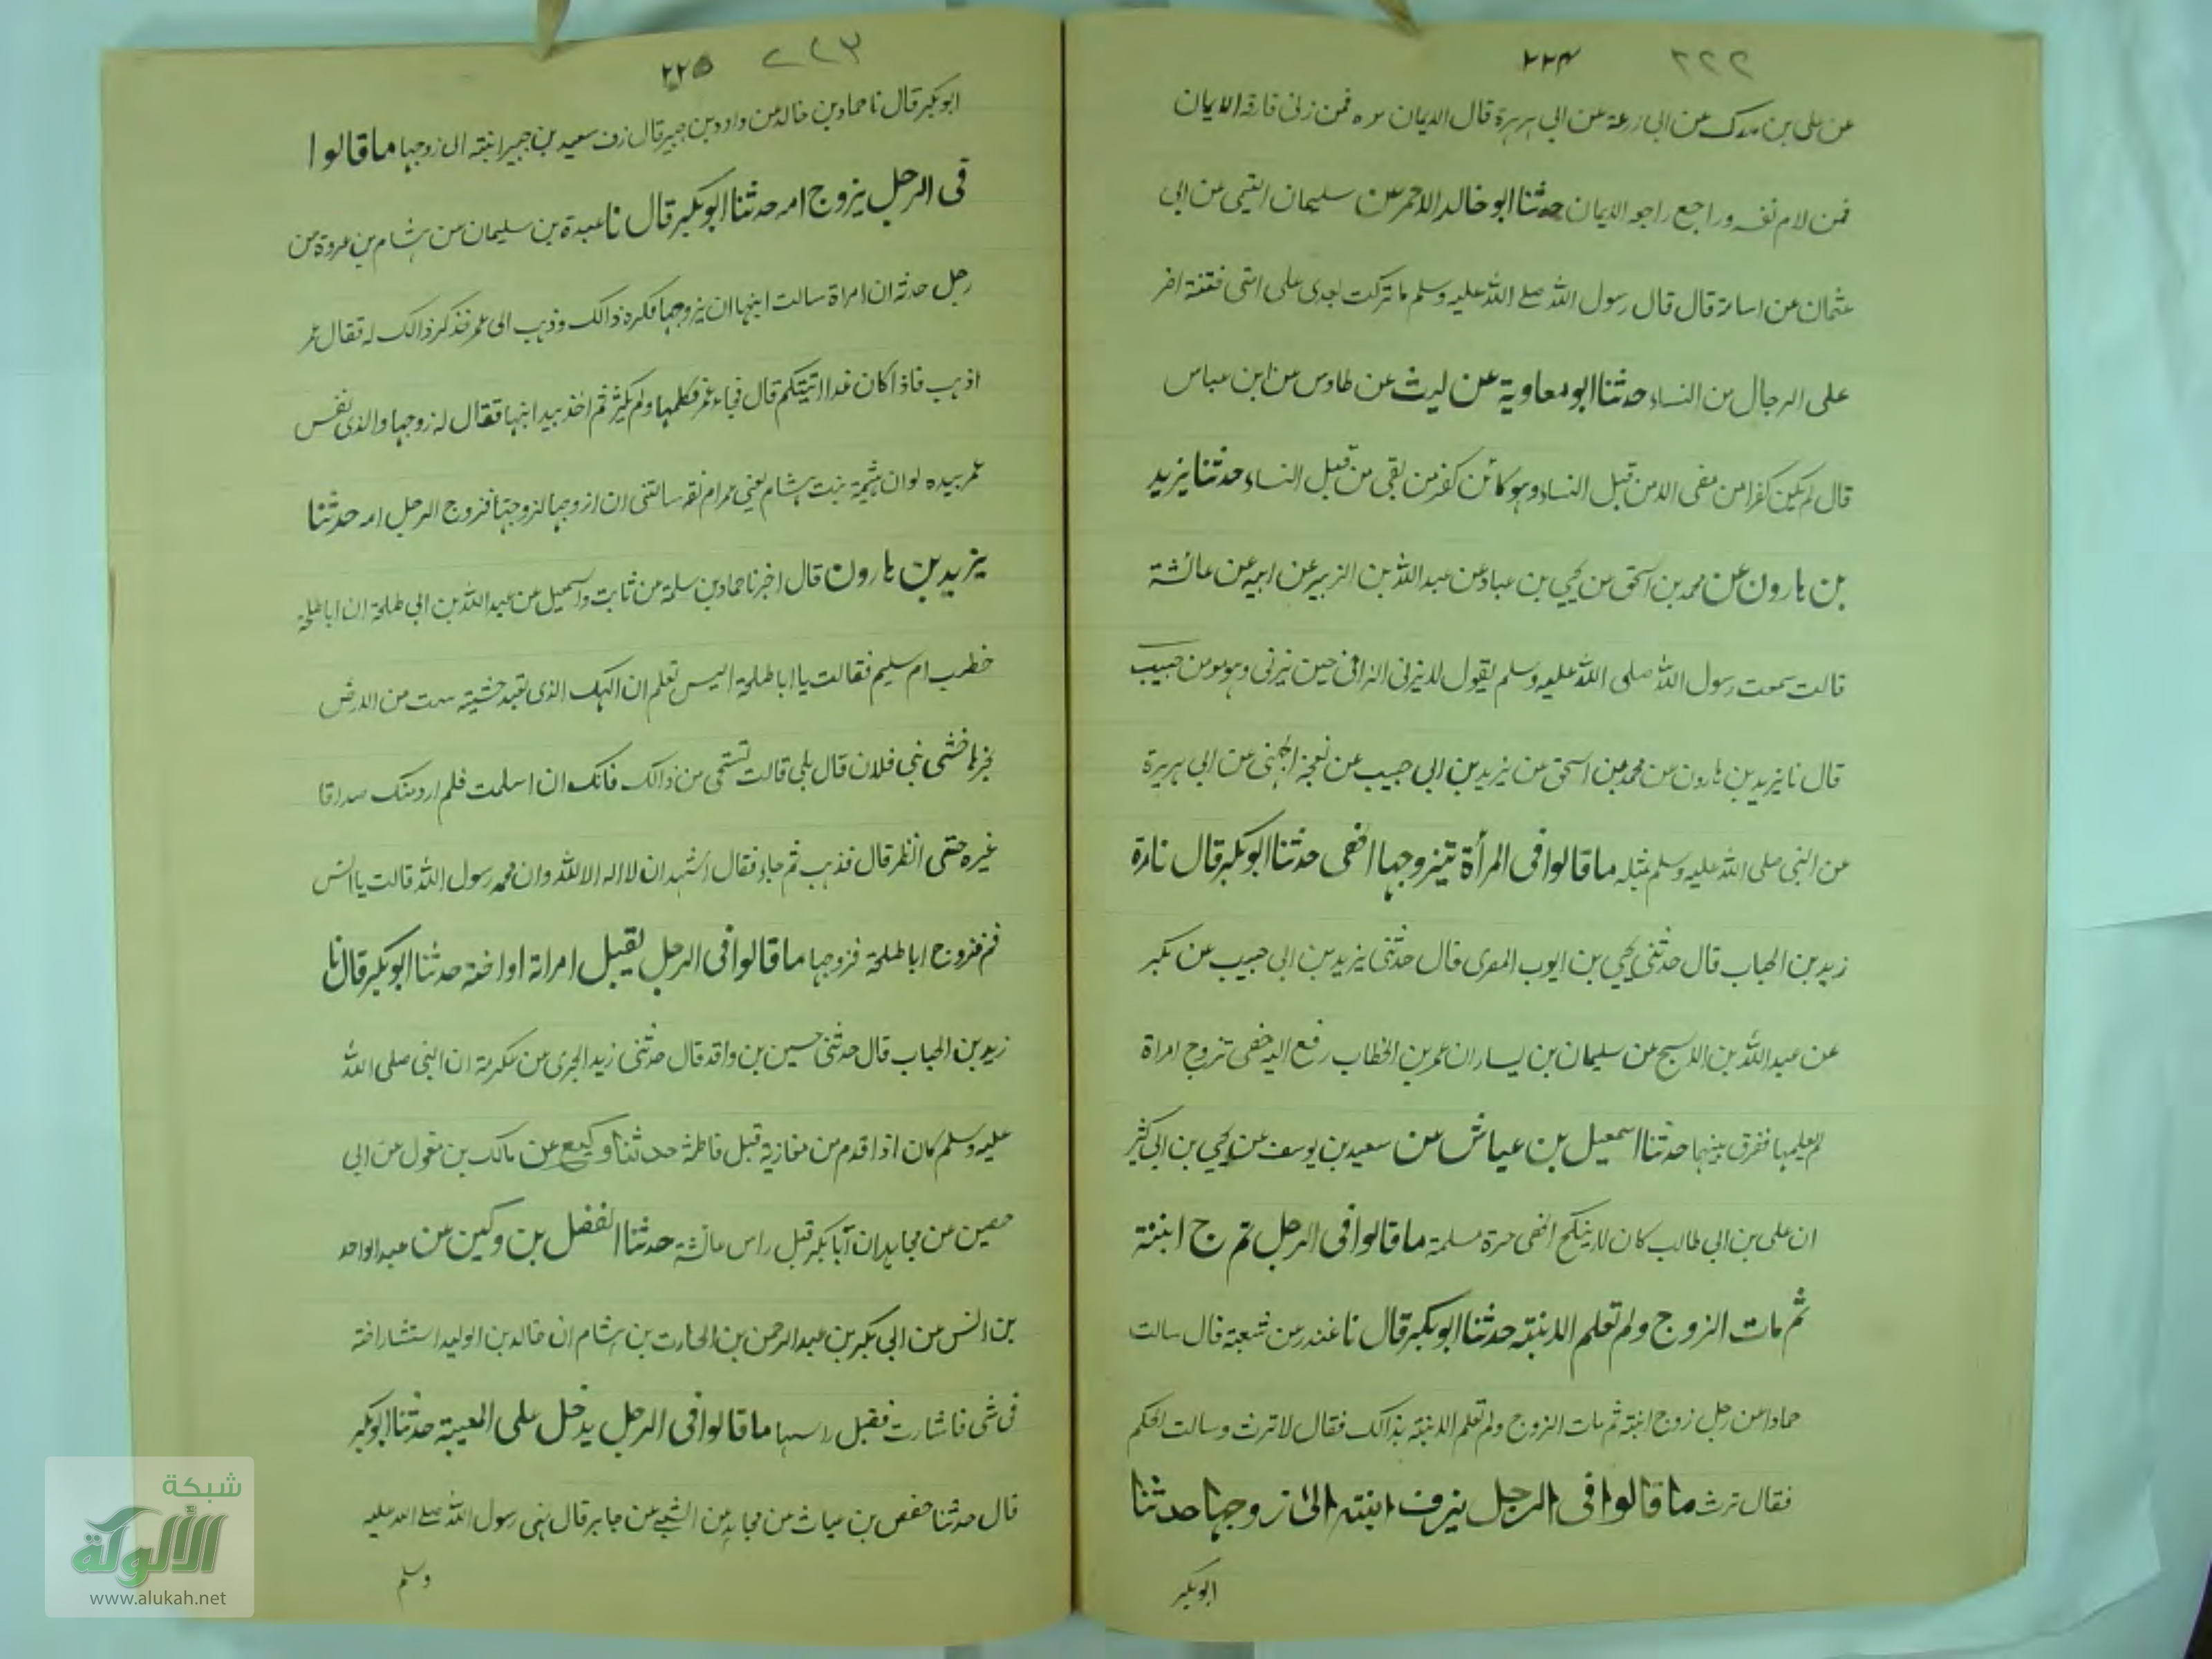 ٢٢٤ ٢٢٢
عن علی بن مدرک عن ابی زرعة عن ابی ہریرة قال الایمان نزہ فمن زنی فارقہ الایمان
فمن لام نفسہ وراجع راجعہ الایمان حدثنا ابو خالد الاحمر عن سلیمان التیمی عن ابی
عثمان عن اسامة قال قال رسول اللہ صلے اللہ علیہ وسلم ما ترکت بعدی علی امتی فتنة اضر
علی الرجال من النساء حدثنا ابو معاویة عن لیث عن طاوس عن ابن عباس
قال لم یکن کفر من مضی الا من قبل النساء وہو کائن کفر من بقی من قبل النساء حدثنا یزید
بن ہارون عن محمد بن اسحق عن یحیی بن عباد عن عبد اللہ بن الزبیر عن ابیہ عن عائشة
قالت سمعت رسول اللہ صلی اللہ علیہ وسلم یقول لا یزنی الزانی حین یزنی وہو مومن حبیب
قال نا یزید بن ہارون عن محمد بن اسحق عن یزید بن ابی حبیب عن نعجة الجہنی عن ابی ہریرة
عن النبی صلی اللہ علیہ وسلم مثلہ ما قالوا فی المرأة یتزوجہا الخصی حدثنا ابوبکر قال نا
زید بن الحباب قال حدثنی یحیی بن ایوب المصری قال حدثنی یزید بن ابی حبیب عن بکر
عن عبد اللہ بن الاسبح عن سلیمان بن یسار ان عمر بن الخطاب رفع الیہ خصی تزوج امراة
لم یعلمہا ففرق بینہما حدثنا اسمعیل بن عیاش عن سعید بن یوسف عن یحیی بن ابی کثیر
ان علی بن ابی طالب کان لا ینکح الخصی حرة مسلمة ما قالوا فی الرجل ج ابنتہ
ثم مات الزوج ولم تعلم الابنتہ حدثنا ابوبکر قال نا غندر عن شعبة قال سالت
حمادا عن رجل زوج ابنتہ ثم مات الزوج ولم تعلم الابنتہ بذالک فقال لا ترث وسالت الحکم
فقال ترث ما قالوا فی الرجل یزف ابنتہ الی زوجہا حدثنا
ابوبکر
٢٢٥ ٢٢٣
ابوبکر قال نا حماد بن خالد عن داود بن جبیر قال زف سعید بن جبیر ابنتہ الی زوجہا ما قالوا
فی الرجل یزوج امہ حدثنا ابوبکر قال نا عبدة بن سلیمان عن ہشام بن عروة عن
رجل حدثہ ان امراة سالت ابنہا ان یزوجہا فکرہ ذالک وذہب الی عمر فذکر ذالک لہ فقال عمر
اذہب فاذا کان غدا اتیتکم قال فجاء عمر فکلمہا ولم یکثر ثم اخذ بید ابنہا فقال لہ زوجہا والذی نفس
عمر بیدہ لو ان حنتمة بنت ہشام یعنی عمر ام نفسہ سالتنی ان ازوجہا لزوجتہا فزوج الرجل امہ حدثنا
یزید بن ہارون قال اخبرنا حماد بن سلمة عن ثابت واسمعیل عن عبد اللہ بن ابی طلحة ان ابا طلحة
خطب ام سلیم فقالت یا ابا طلحة الیس تعلم ان الہک الذی تعبد خشبتہ من الارض
نجرہا حبشی بنی فلان قال بلی قالت تستحی من ذالک فانک ان اسلمت فلم ارد منک صداقا
غیرہ حتی انظر قال فذہب ثم جاء فقال اشہد ان لا الہ الا اللہ وان محمد رسول اللہ قالت یا انس
قم فزوج ابا طلحة فزوجہا ما قالوا فی الرجل یقبل امراتہ او اختہ حدثنا ابوبکر قال نا
زید بن الحباب قال حدثنی حسین بن واقد قال حدثنی زید عن عکرمة ان النبی صلی اللہ
علیہ وسلم کان اذا قدم من مغازیہ قبل فاطمة حدثنا وکیع عن مالک بن مغول عن ابی
حصین عن مجاہد ان ابا بکر قبل راس عائشة حدثنا الفضل بن وکین عن عبد الواحد
بن انس عن ابی بکر بن عبد الرحمن بن الحارث بن ہشام ان خالد بن الولید استشار اختہ
فی شی فاشارت فقبل راسہا ما قالوا فی الرجل یدخل علی المغیبة حدثنا ابوبکر
قال حدثنا حفص بن غیاث عن مجالد عن الشعبی عن جابر قال نہی رسول اللہ صلے اللہ علیہ
وسلم
شبكة
الألوكة
www.alukah.net